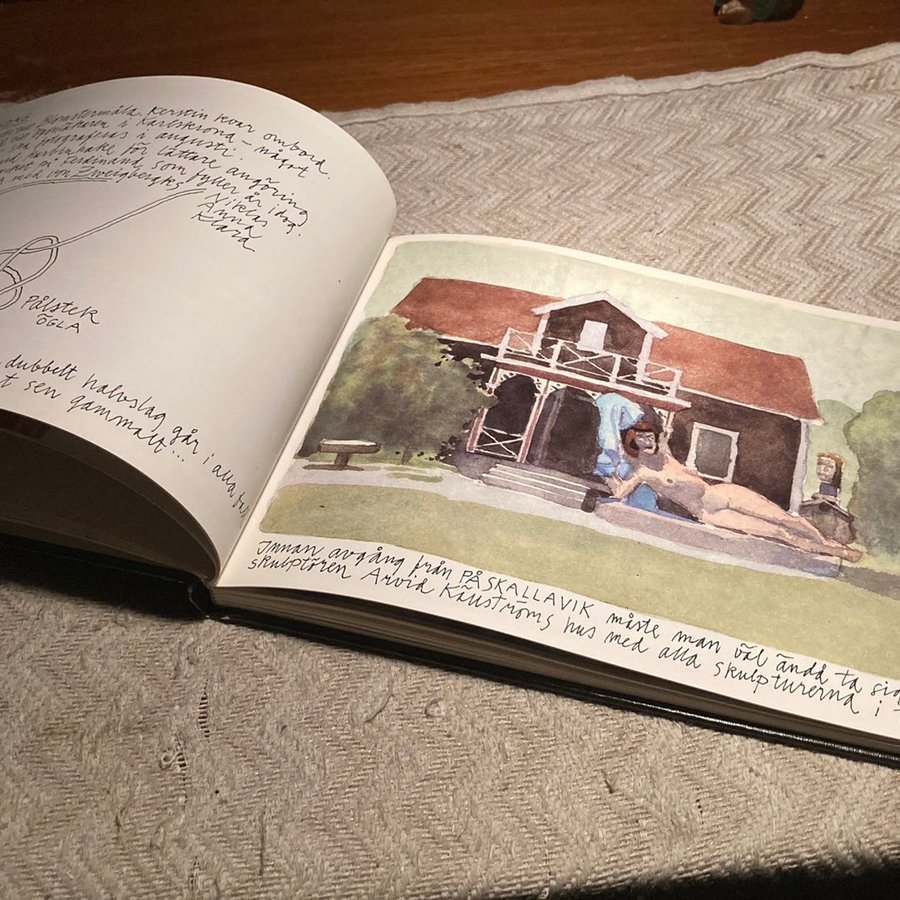 Blomstermåla. Kerstin kvar ombord.
i Karlskrona – något
fotograferas i augusti.
för lättare angöring
på Ferdinand, som fyller år idag.
med von Zweigbergks
Niklas
Anna
Klara
Pålstek
ÖGLA
dubbelt halvslag går i alla fall
sen gammalt...
Innan avgång från PÅSKALLAVIK måste man väl ändå ta sig
skulptören Arvid Källströms hus med alla skulpturerna i